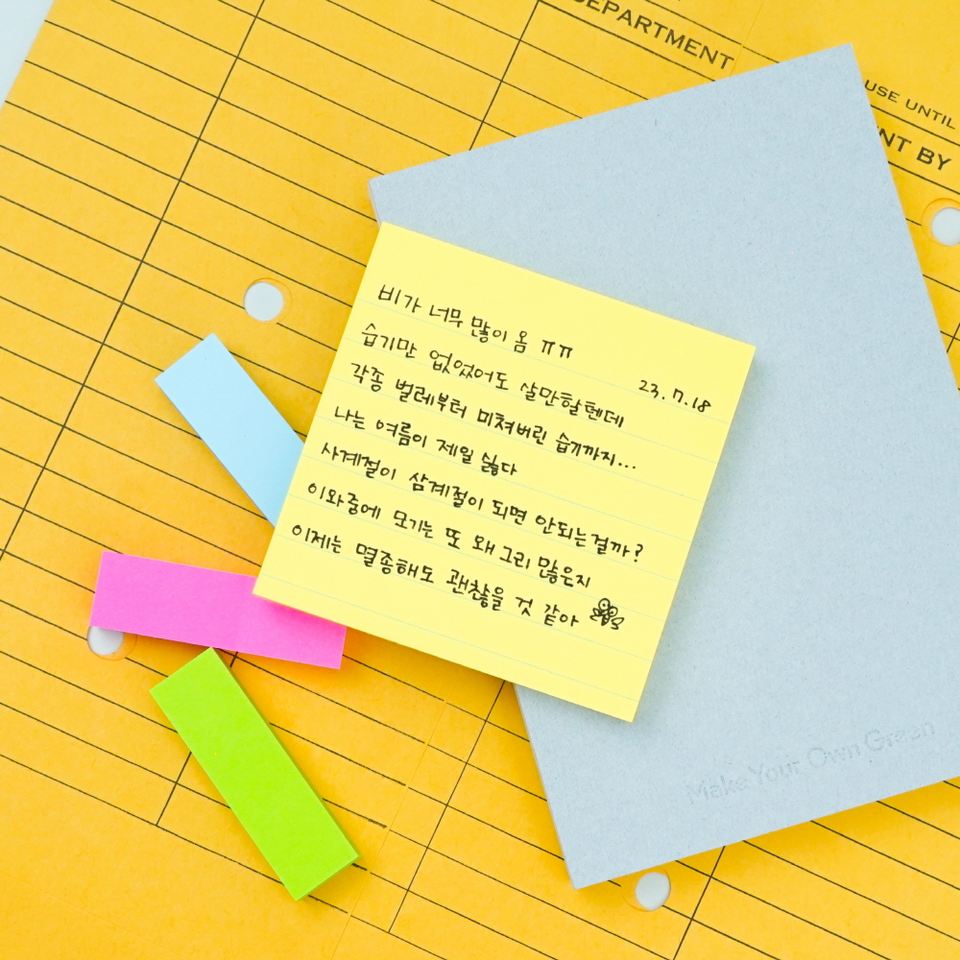 DEPARTMENT
USE UNTIL
NT BY
비가 너무 많이 옴 ㅠㅠ
23.7.18
습기만 없었어도 살만할텐데
각종 벌레부터 미쳐버린 습기까지...
나는 여름이 제일 싫다
사계절이 삼계절이 되면 안되는걸까?
이와중에 모기는 또 왜 그리 많은지
이제는 멸종해도 괜찮을 것 같아
Make Your Own Green